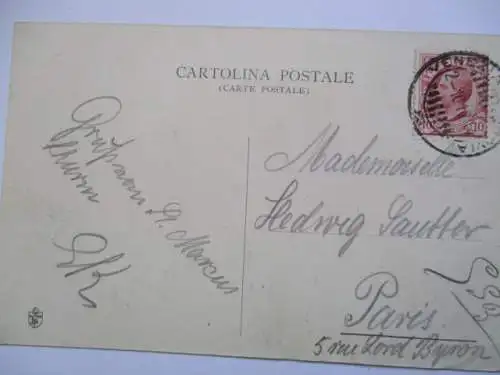 CARTOLINA POSTALE
(CARTE POSTALE)
VENEZIA
10
Gruß vom St. Marcus
thurm
Mademoiselle
Hedwig Sautter
Paris
5 rue Lord Byron